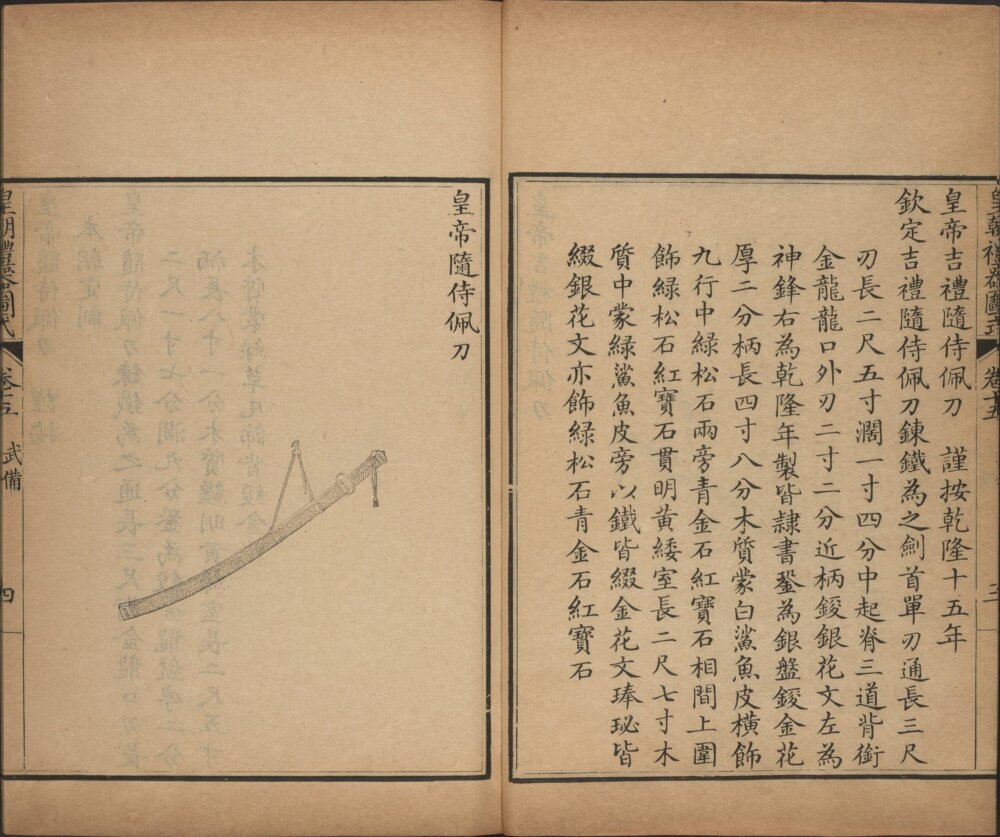 皇朝禮器圖式 卷十五 三
皇帝吉禮隨侍佩刀 謹按乾隆十五年
欽定吉禮隨侍佩刀鍊鐵為之劍首單刃通長三尺
刃長二尺五寸濶一寸四分中起脊三道背銜
金龍龍口外刃二寸二分近柄鋄銀花文左為
神鋒右為乾隆年製皆隸書銎為銀盤鋄金花
厚二分柄長四寸八分木質蒙白鯊魚皮橫飾
九行中綠松石兩旁青金石紅寶石相間上圍
飾綠松石紅寶石貫明黃緌室長二尺七寸木
質中蒙綠鯊魚皮旁以鐵皆綴金花文琫珌皆
綴銀花文亦飾綠松石青金石紅寶石
皇帝隨侍佩刀
皇朝禮器圖式 卷十五 武備 四